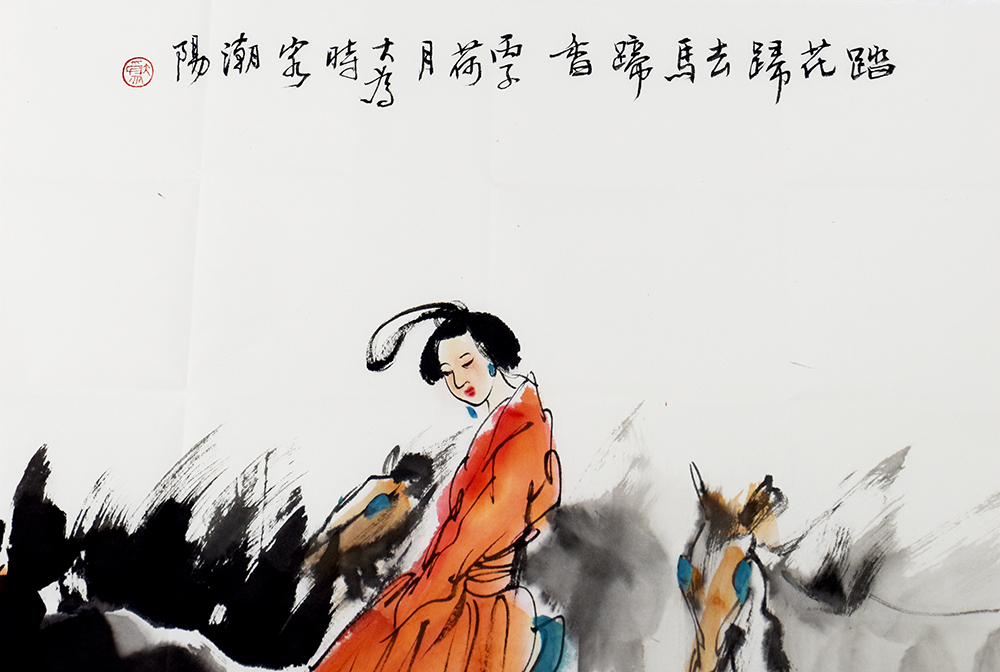 踏花歸去馬蹄香丙子荷月大為時客潮陽